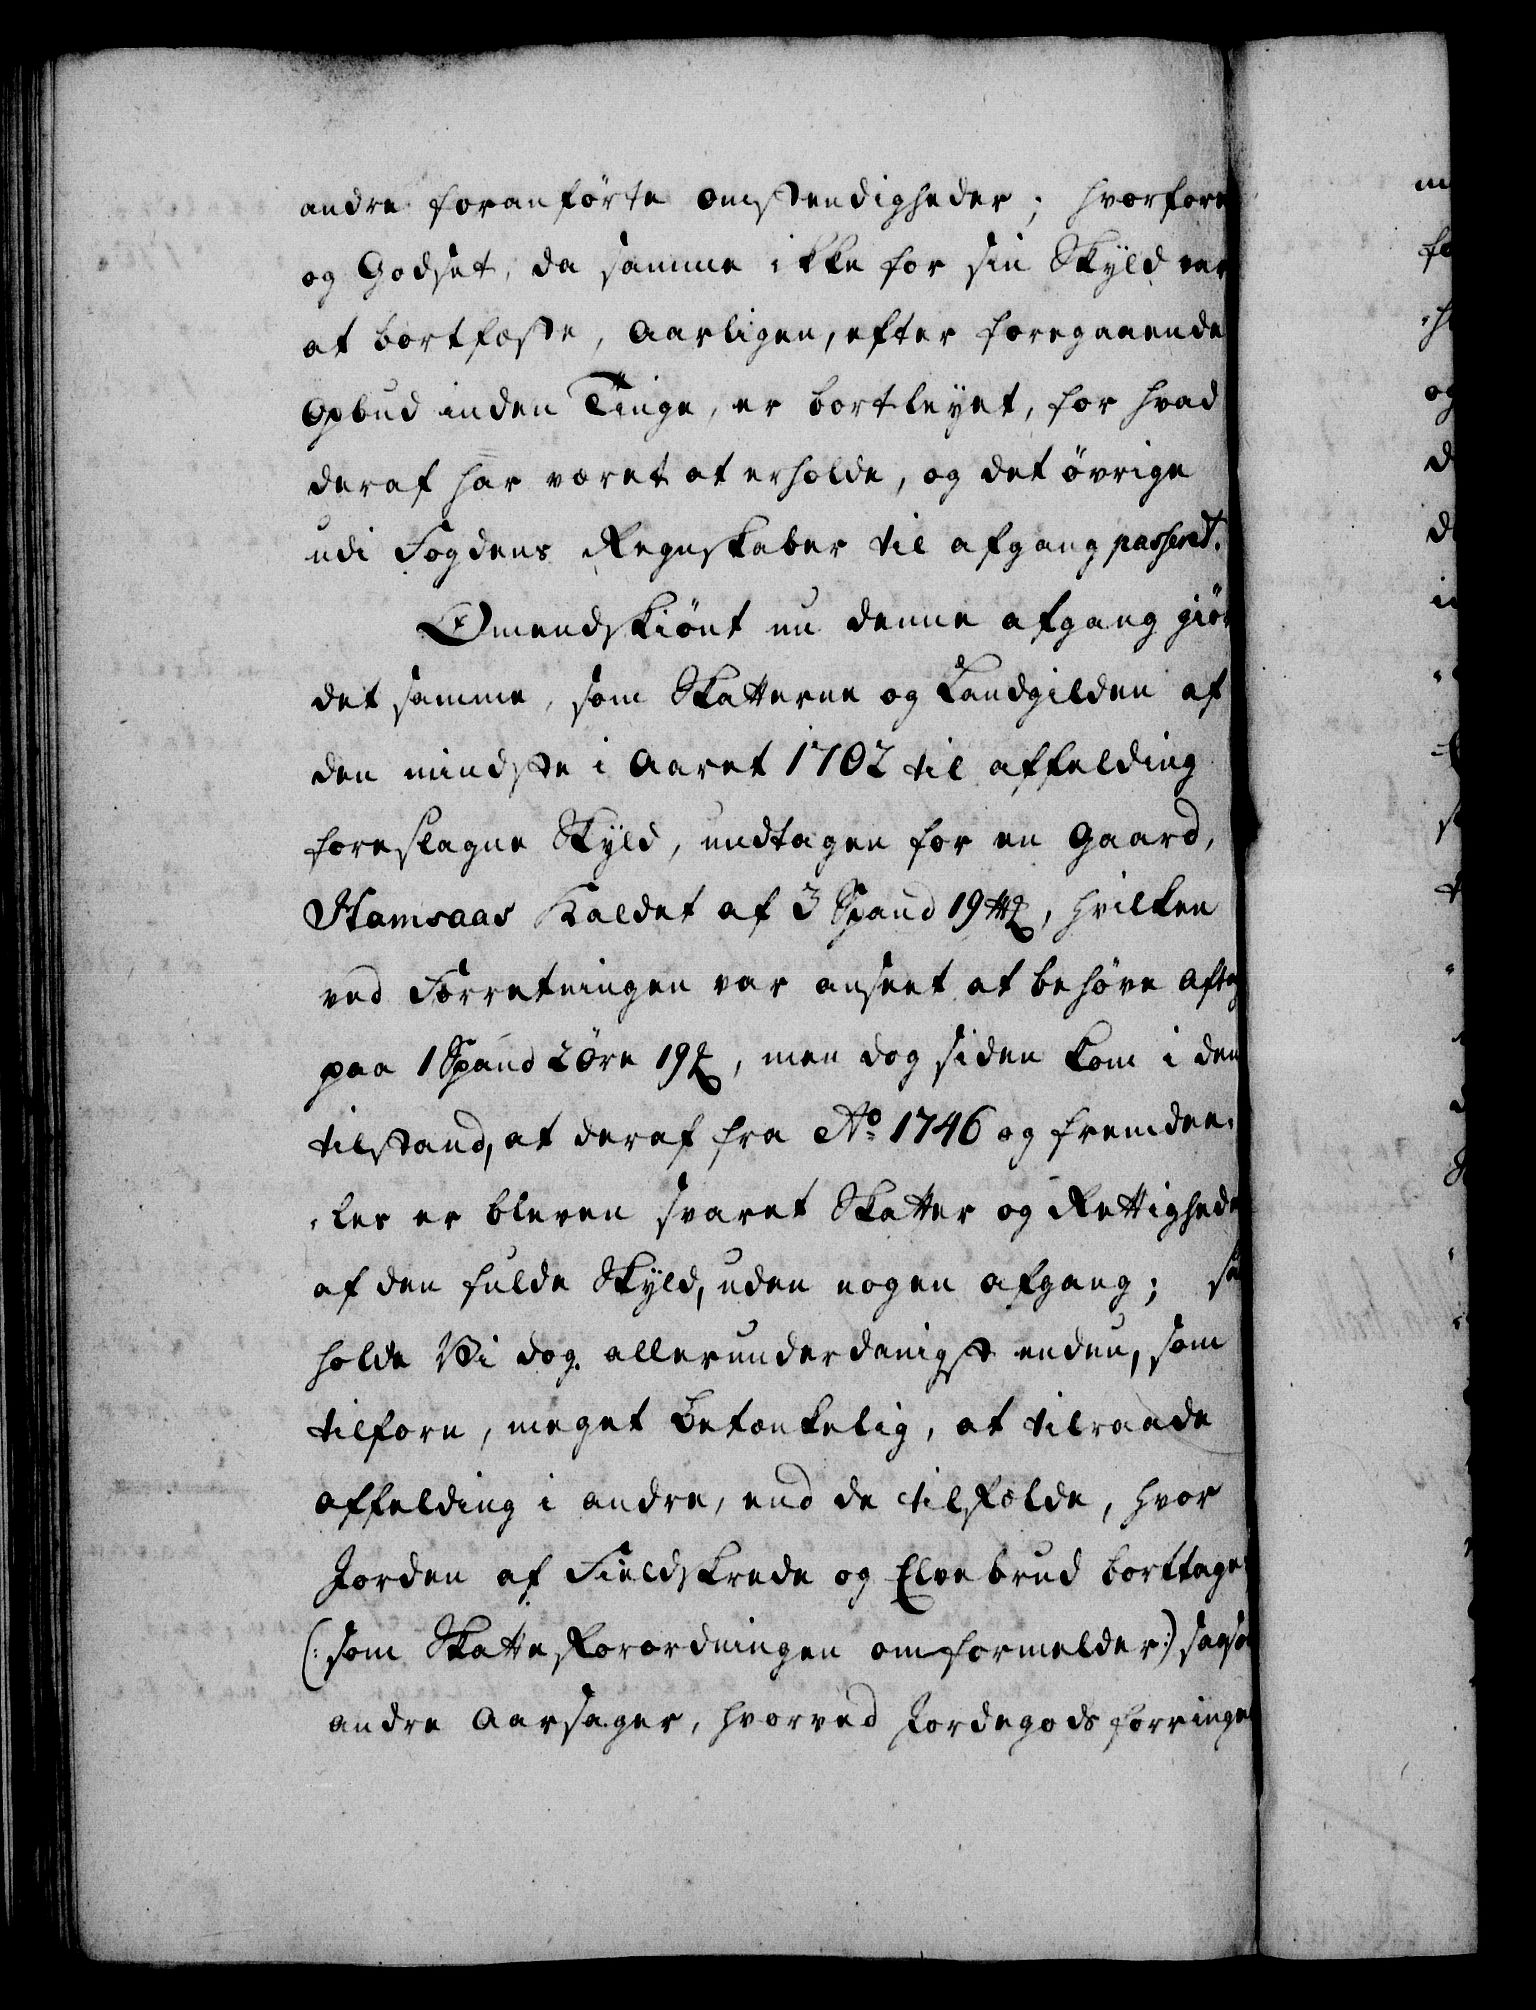 andre foranförte omstendigheder; hvorfore
og Godset, da samme ikke for sin Skyld var
at bortfæste, Aarligen, efter foregaaende
Opbud inden Tinge, er bortleyet, for hvad
deraf har været at erholde, og det övrige
udi Fogdens Regnskaber til afgang passeret.
Omendskiönt nu denne afgang giör
det samme, som Skatterne og Landgilden af
den mindste i Aaret 1702 til affelding
foreslagne Skyld, undtagen for en Gaard,
Hamsaas Kaldet af 3 Spand 19 Mk, hvilken
ved Forretningen var anseet at behöve Aftag
paa 1 Spand 2 Öre 19, men dog siden kom i den
tilstand, at deraf fra Ao. 1746 og fremdee-
les er bleven svaret Skatter og Rettigheder
af den fulde Skyld, uden nogen afgang; saa
holde Vi dog allerunderdanigst endnu, som
tilforn, meget betænkelig, at tilraade
affelding i andre, end de tilfælde, hvor
Jorden af Fieldskrede og Elvebrud borttages
(: som Skatteforordningen omformelder :) saasom
andre Aarsager, hvorved Jordegods forringes